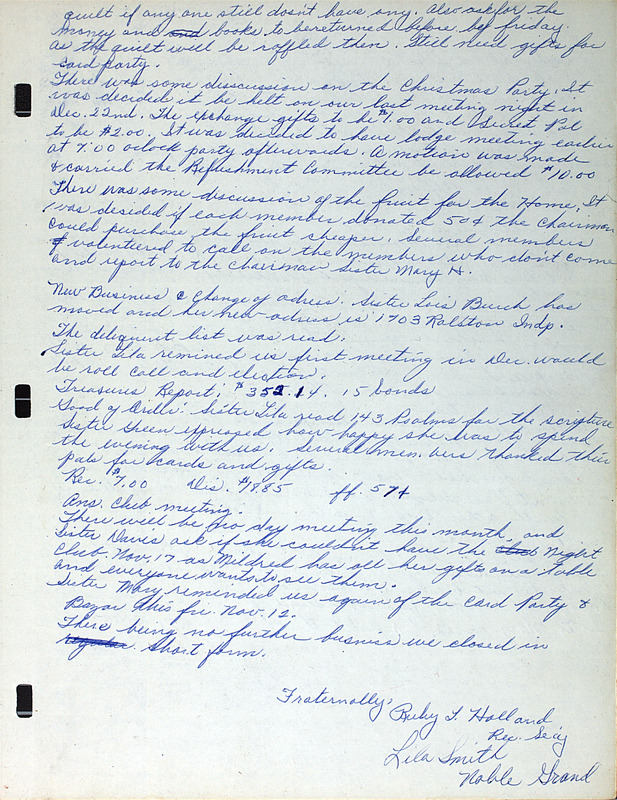 quilt if any one still dosn't have any. Also ask for the
money and and books to bereturned before by friday.
as the quilt will be roffled then. Still need gifts for
card party.
There was some disscussion on the Christmas Party. It
was decided it be helt on our last meeting night in
Dec. 22nd. The exchange gifts to be $1.00 and Secret Pal
to be $2.00. It was decided to have lodge meeting earlier
at 7:00 oclock party afterwards. A motion was made
& carried the Refreshment Committee be allowed $10.00
There was some discussion of the fruit for the Home. It
was desided if each member donated 50¢ the chairman
could purchase the fruit cheaper. Several members
volentered to call on the members who don't come
and report to the chairman Sister Mary H.
New Business & Change of adress. Sister Lois Burch has
moved and her new adress is 1703 Ralston Indp.
The deliquent list was read.
Sister Lila remined us first meeting in Dec. would
be roll call and election.
Treasures Report: $352.14. 15 bonds
Good of Order: Sister Lila read 143 Psalms for the scripture
Sister Green expressed how happy she was to spend
the evening with us. Several mem bers thanked their
pals for cards and gifts.
Rec. $7.00 Dis. $19.85 ff. 57¢
Ans. Club meeting.
There will be no day meeting this month, and
Sister Davis ask if she couldn't have the Night
Club, Nov. 17 as Mildred has all her gifts on a table
and everyone wants to see them.
Sister Mary reminded us again of the Card Party &
Bazar this fri. Nov. 12.
There being no further busniss we closed in
regular short form.
Fraternally,
Ruby T. Holland
Rec. Sec'y
Lila Smith
Noble Grand